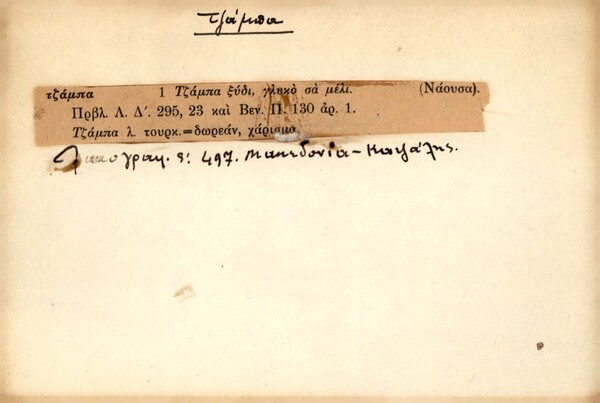 τζάμπα
τζάμπα 1 Τζάμπα ξύδι, γλυκὸ σὰ μέλι. (Νάουσα).
Πρβλ. Λ. Δ´. 295, 23 καὶ Βεν. Π. 130 ἀρ. 1.
Τζάμπα λ. τουρκ.=δωρεάν, χάρισμα.
497. Μακεδονία -